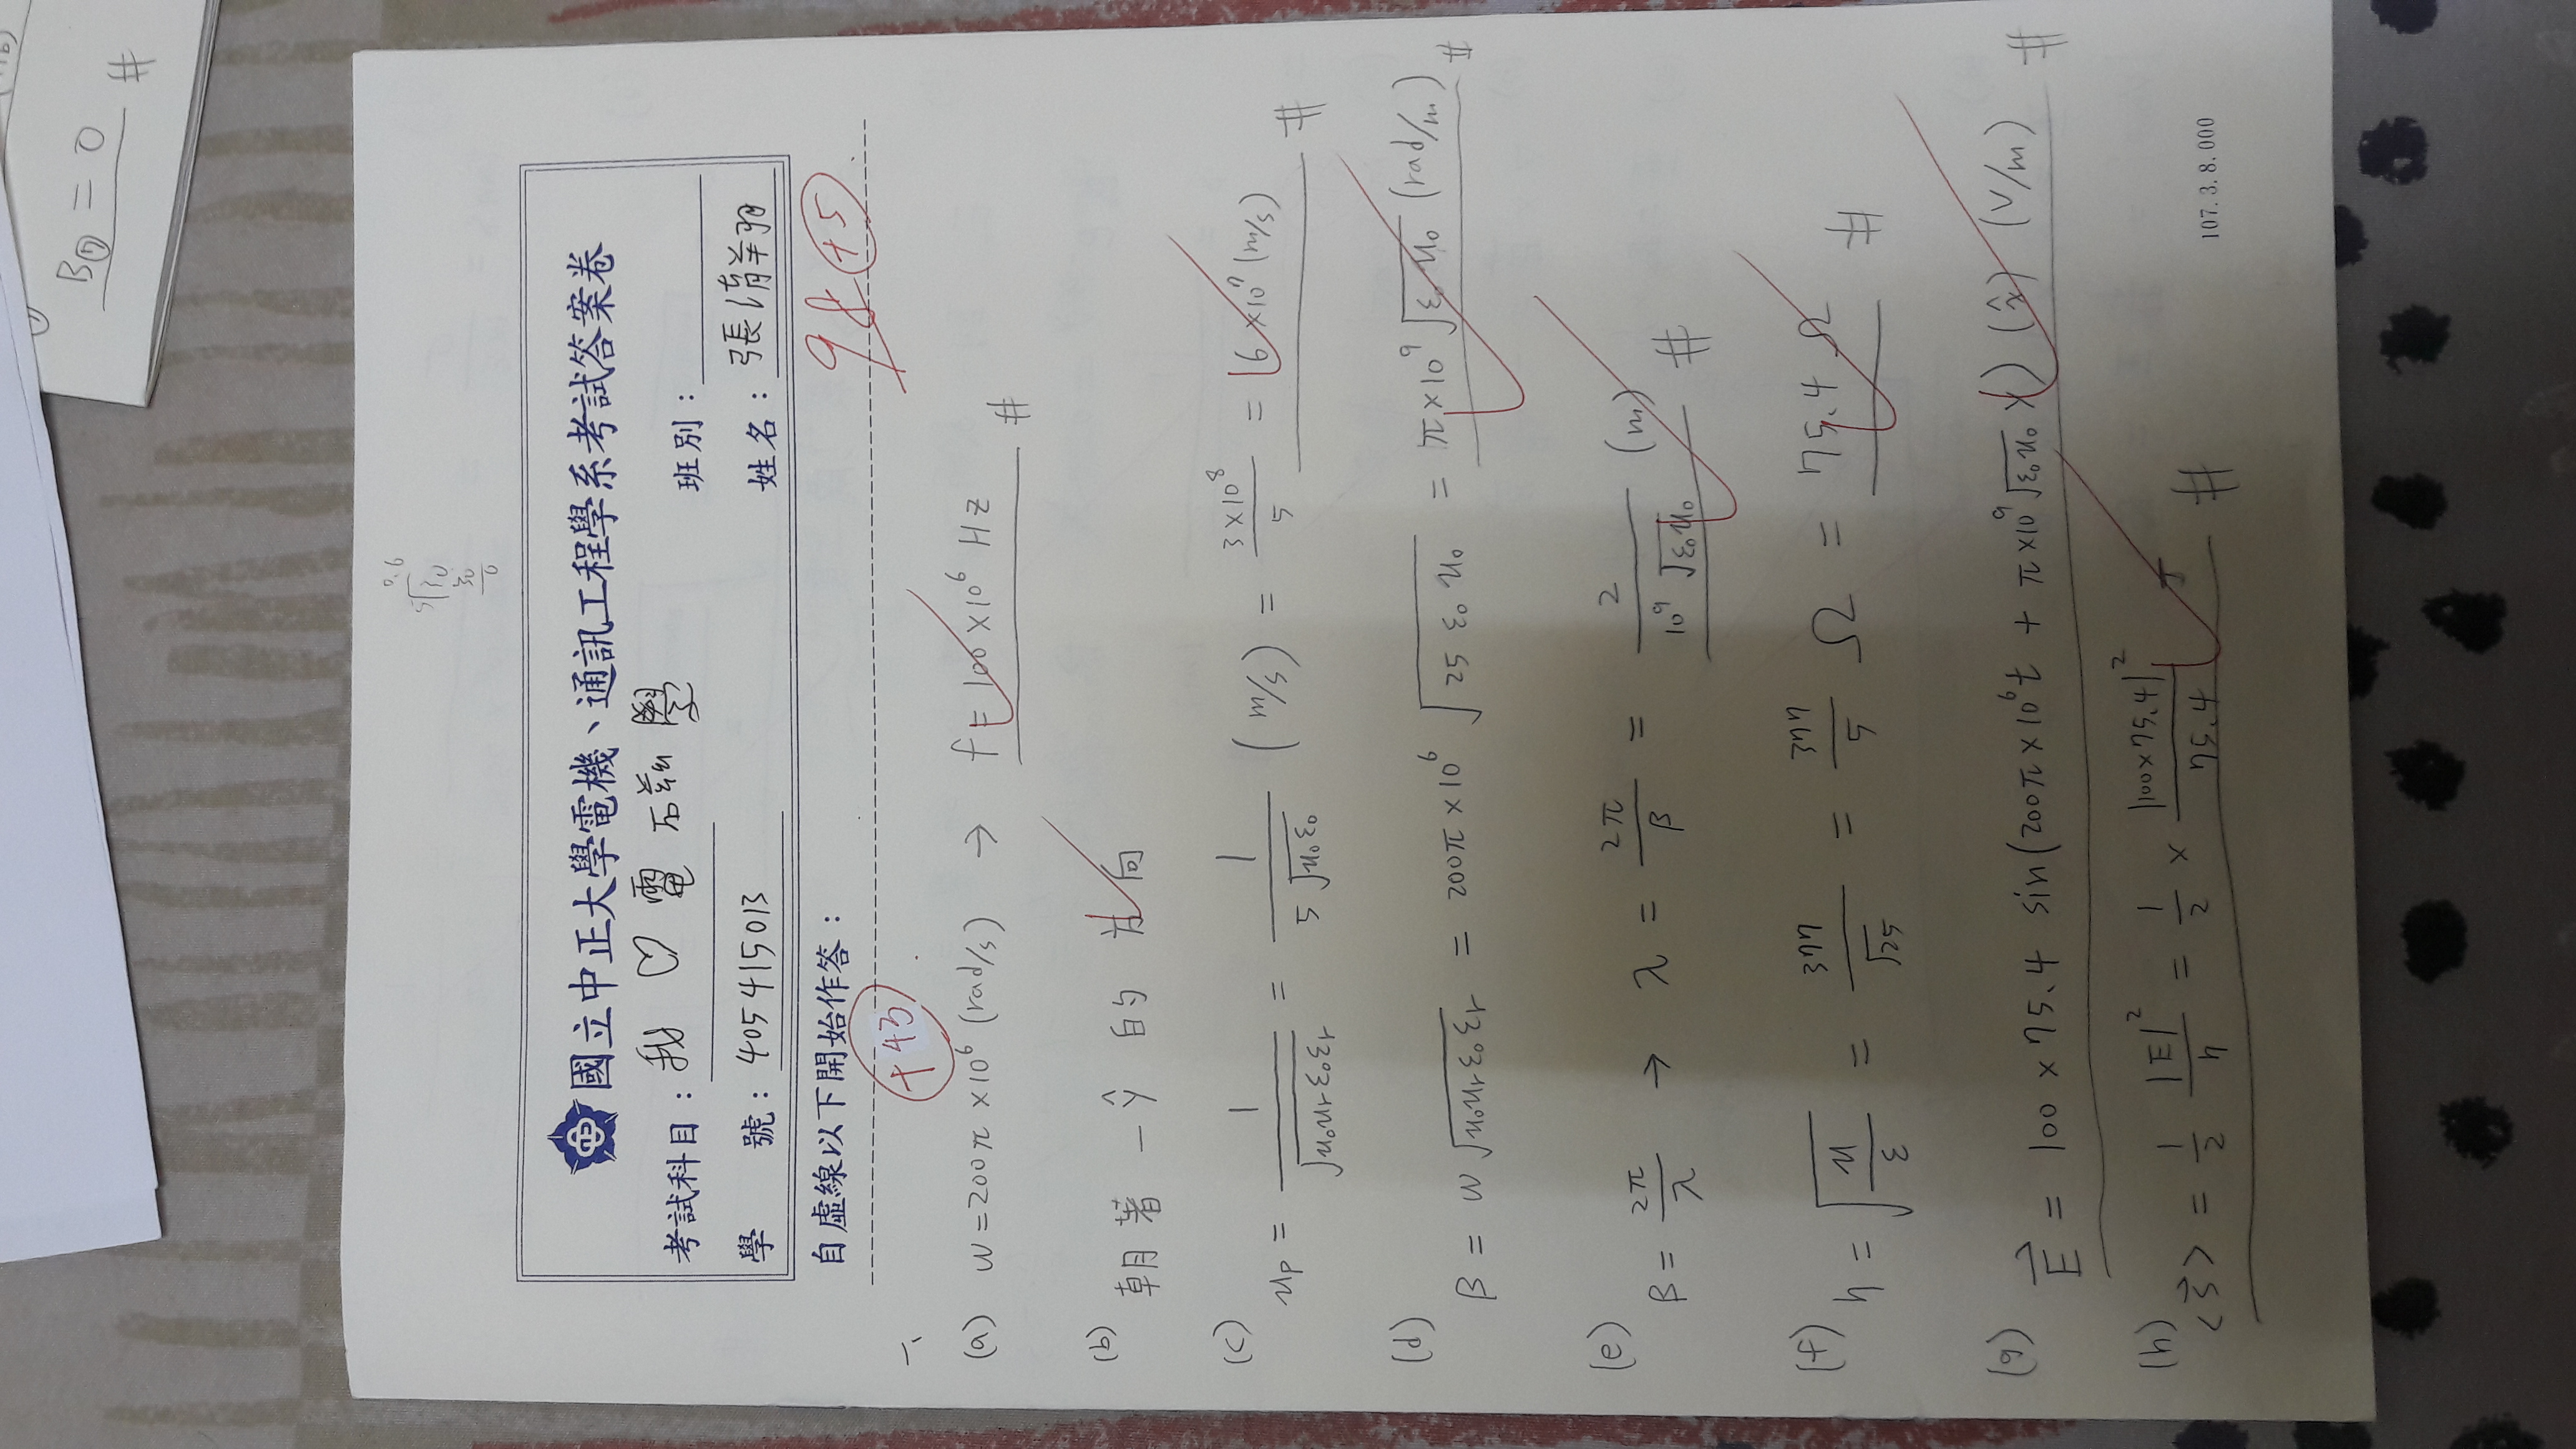 B⑦ = 0 #
0.6
5√30
30
0
國立中正大學電機、通訊工程學系考試答案卷
考試科目：我 ♡ 電磁學
班別：
學 號：405415013
姓名：張清翔
自虛線以下開始作答：
98 +5
+43
一、
(a) ω = 200π × 10⁶ (rad/s) → f = 100 × 10⁶ Hz #
(b) 朝著 -ŷ 的方向
(c) up = 1/√(μ₀μrε₀εr) = 1/(5√(μ₀ε₀)) (m/s) = (3×10⁸)/5 = 6×10⁷ (m/s) #
(d) β = ω√(μ₀μrε₀εr) = 200π × 10⁶ √(25 ε₀ μ₀) = π×10⁹ √(ε₀ μ₀) (rad/m) #
(e) β = 2π/λ → λ = 2π/β = 2/(10⁹ √(ε₀μ₀)) (m) #
(f) η = √(μ/ε) = 377/√25 = 377/5 Ω = 75.4 Ω #
(g) E⃗ = 100 × 75.4 sin(200π×10⁶t + π×10⁹√(ε₀μ₀) y) (x̂) (V/m) #
(h) <S⃗> = 1/2 |E|²/η = 1/2 × |100×75.4|²/75.4 #
107.3.8.000